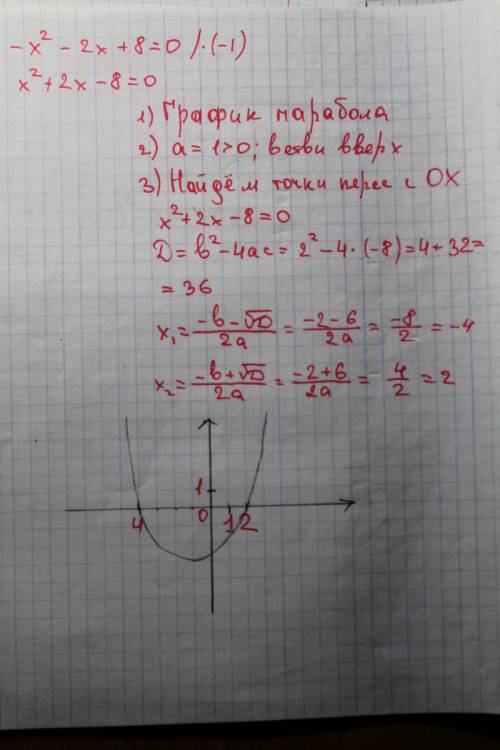 -x² - 2x + 8 = 0 / · (-1)
x² + 2x - 8 = 0
1) График парабола
2) a = 1 > 0; ветви вверх
3) Найдём точки перес с OX
x² + 2x - 8 = 0
D = b² - 4ac = 2² - 4 · (-8) = 4 + 32 =
= 36
x₁ = (-b - √D)/2a = (-2 - 6)/2a = -8/2 = -4
x₂ = (-b + √D)/2a = (-2 + 6)/2a = 4/2 = 2
1
4 0 1 2